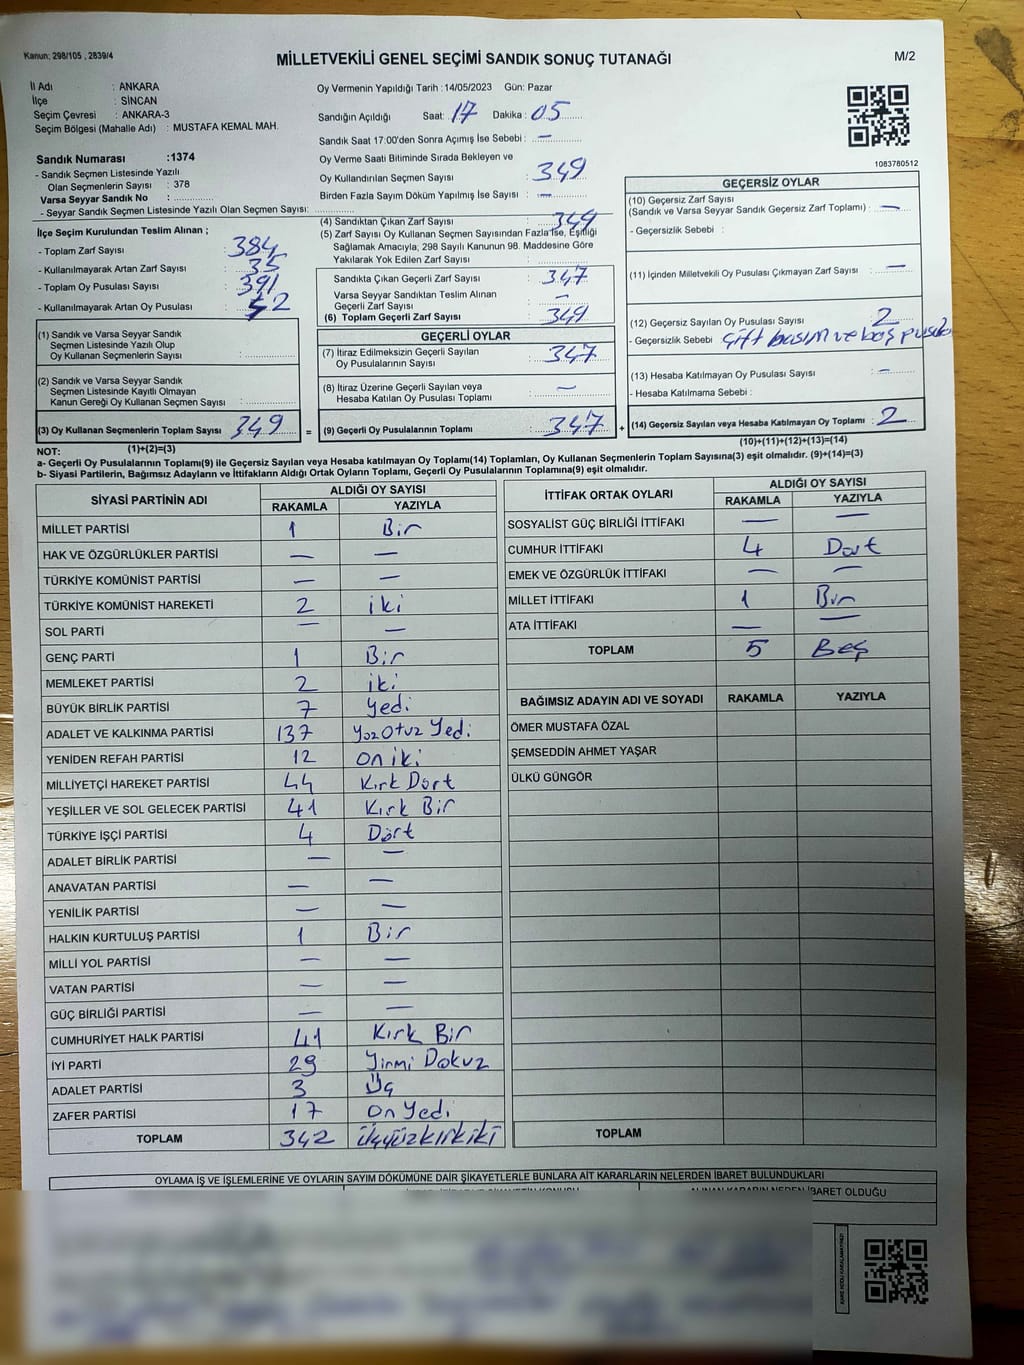 Kanun; 298/105 , 2839/4
MİLLETVEKİLİ GENEL SEÇİMİ SANDIK SONUÇ TUTANAĞI
M/2
İl Adı : ANKARA
İlçe : SİNCAN
Seçim Çevresi : ANKARA-3
Seçim Bölgesi (Mahalle Adı) : MUSTAFA KEMAL MAH.
Sandık Numarası :1374
- Sandık Seçmen Listesinde Yazılı
Olan Seçmenlerin Sayısı : 378
Varsa Seyyar Sandık No :
- Seyyar Sandık Seçmen Listesinde Yazılı Olan Seçmen Sayısı:
Oy Vermenin Yapıldığı Tarih :14/05/2023 Gün: Pazar
Sandığın Açıldığı Saat: 17 Dakika : 05
Sandık Saat 17:00'den Sonra Açımış İse Sebebi : —
Oy Verme Saati Bitiminde Sırada Bekleyen ve
Oy Kullandırılan Seçmen Sayısı : 349
Birden Fazla Sayım Döküm Yapılmış İse Sayısı : —
1083780512
İlçe Seçim Kurulundan Teslim Alınan ;
- Toplam Zarf Sayısı : 384
- Kullanılmayarak Artan Zarf Sayısı : 35
- Toplam Oy Pusulası Sayısı : 391
- Kullanılmayarak Artan Oy Pusulası : 42
(1) Sandık ve Varsa Seyyar Sandık
Seçmen Listesinde Yazılı Olup
Oy Kullanan Seçmenlerin Sayısı :
(2) Sandık ve Varsa Seyyar Sandık
Seçmen Listesinde Kayıtlı Olmayan
Kanun Gereği Oy Kullanan Seçmen Sayısı :
(3) Oy Kullanan Seçmenlerin Toplam Sayısı : 349 =
(4) Sandıktan Çıkan Zarf Sayısı : 349
(5) Zarf Sayısı Oy Kullanan Seçmen Sayısından Fazla İse, Eşitliği
Sağlamak Amacıyla; 298 Sayılı Kanunun 98. Maddesine Göre
Yakılarak Yok Edilen Zarf Sayısı :
Sandıkta Çıkan Geçerli Zarf Sayısı : 347
Varsa Seyyar Sandıktan Teslim Alınan
Geçerli Zarf Sayısı : —
(6) Toplam Geçerli Zarf Sayısı : 349
GEÇERLİ OYLAR
(7) İtiraz Edilmeksizin Geçerli Sayılan
Oy Pusulalarının Sayısı : 347
(8) İtiraz Üzerine Geçerli Sayılan veya
Hesaba Katılan Oy Pusulası Toplamı : —
(9) Geçerli Oy Pusulalarının Toplamı : 347 +
GEÇERSİZ OYLAR
(10) Geçersiz Zarf Sayısı
(Sandık ve Varsa Seyyar Sandık Geçersiz Zarf Toplamı) : —
- Geçersizlik Sebebi :
(11) İçinden Milletvekili Oy Pusulası Çıkmayan Zarf Sayısı : —
(12) Geçersiz Sayılan Oy Pusulası Sayısı : 2
- Geçersizlik Sebebi : Çift basım ve boş pusula
(13) Hesaba Katılmayan Oy Pusulası Sayısı : —
- Hesaba Katılmama Sebebi :
(14) Geçersiz Sayılan veya Hesaba Katılmayan Oy Toplamı : 2
NOT: (1)+(2)=(3)
(10)+(11)+(12)+(13)=(14)
a- Geçerli Oy Pusulalarının Toplamı(9) ile Geçersiz Sayılan veya Hesaba Katılmayan Oy Toplamı(14) Toplamları, Oy Kullanan Seçmenlerin Toplam Sayısına(3) eşit olmalıdır. (9)+(14)=(3)
b- Siyasi Partilerin, Bağımsız Adayların ve İttifakların Aldığı Ortak Oyların Toplamı, Geçerli Oy Pusulalarının Toplamına(9) eşit olmalıdır.
SİYASİ PARTİNİN ADI ALDIĞI OY SAYISI
RAKAMLA YAZIYLA
MİLLET PARTİSİ 1 Bir
HAK VE ÖZGÜRLÜKLER PARTİSİ — —
TÜRKİYE KOMÜNİST PARTİSİ — —
TÜRKİYE KOMÜNİST HAREKETİ 2 iki
SOL PARTİ — —
GENÇ PARTİ 1 Bir
MEMLEKET PARTİSİ 2 iki
BÜYÜK BİRLİK PARTİSİ 7 Yedi
ADALET VE KALKINMA PARTİSİ 137 Yüz Otuz Yedi
YENİDEN REFAH PARTİSİ 12 on iki
MİLLİYETÇİ HAREKET PARTİSİ 44 Kırk Dört
YEŞİLLER VE SOL GELECEK PARTİSİ 41 Kırk Bir
TÜRKİYE İŞÇİ PARTİSİ 4 Dört
ADALET BİRLİK PARTİSİ — —
ANAVATAN PARTİSİ — —
YENİLİK PARTİSİ — —
HALKIN KURTULUŞ PARTİSİ 1 Bir
MİLLİ YOL PARTİSİ — —
VATAN PARTİSİ — —
GÜÇ BİRLİĞİ PARTİSİ — —
CUMHURİYET HALK PARTİSİ 41 Kırk Bir
İYİ PARTİ 29 Yirmi Dokuz
ADALET PARTİSİ 3 Üç
ZAFER PARTİSİ 17 On Yedi
TOPLAM 342 Üçyüzkırkiki
İTTİFAK ORTAK OYLARI ALDIĞI OY SAYISI
RAKAMLA YAZIYLA
SOSYALİST GÜÇ BİRLİĞİ İTTİFAKI — —
CUMHUR İTTİFAKI 4 Dört
EMEK VE ÖZGÜRLÜK İTTİFAKI — —
MİLLET İTTİFAKI 1 Bir
ATA İTTİFAKI — —
TOPLAM 5 Beş
BAĞIMSIZ ADAYIN ADI VE SOYADI RAKAMLA YAZIYLA
ÖMER MUSTAFA ÖZAL
ŞEMSEDDİN AHMET YAŞAR
ÜLKÜ GÜNGÖR
TOPLAM
OYLAMA İŞ VE İŞLEMLERİNE VE OYLARIN SAYIM DÖKÜMÜNE DAİR ŞİKAYETLERLE BUNLARA AİT KARARLARIN NELERDEN İBARET BULUNDUKLARI
ALINAN KARARIN NEDEN İBARET OLDUĞU